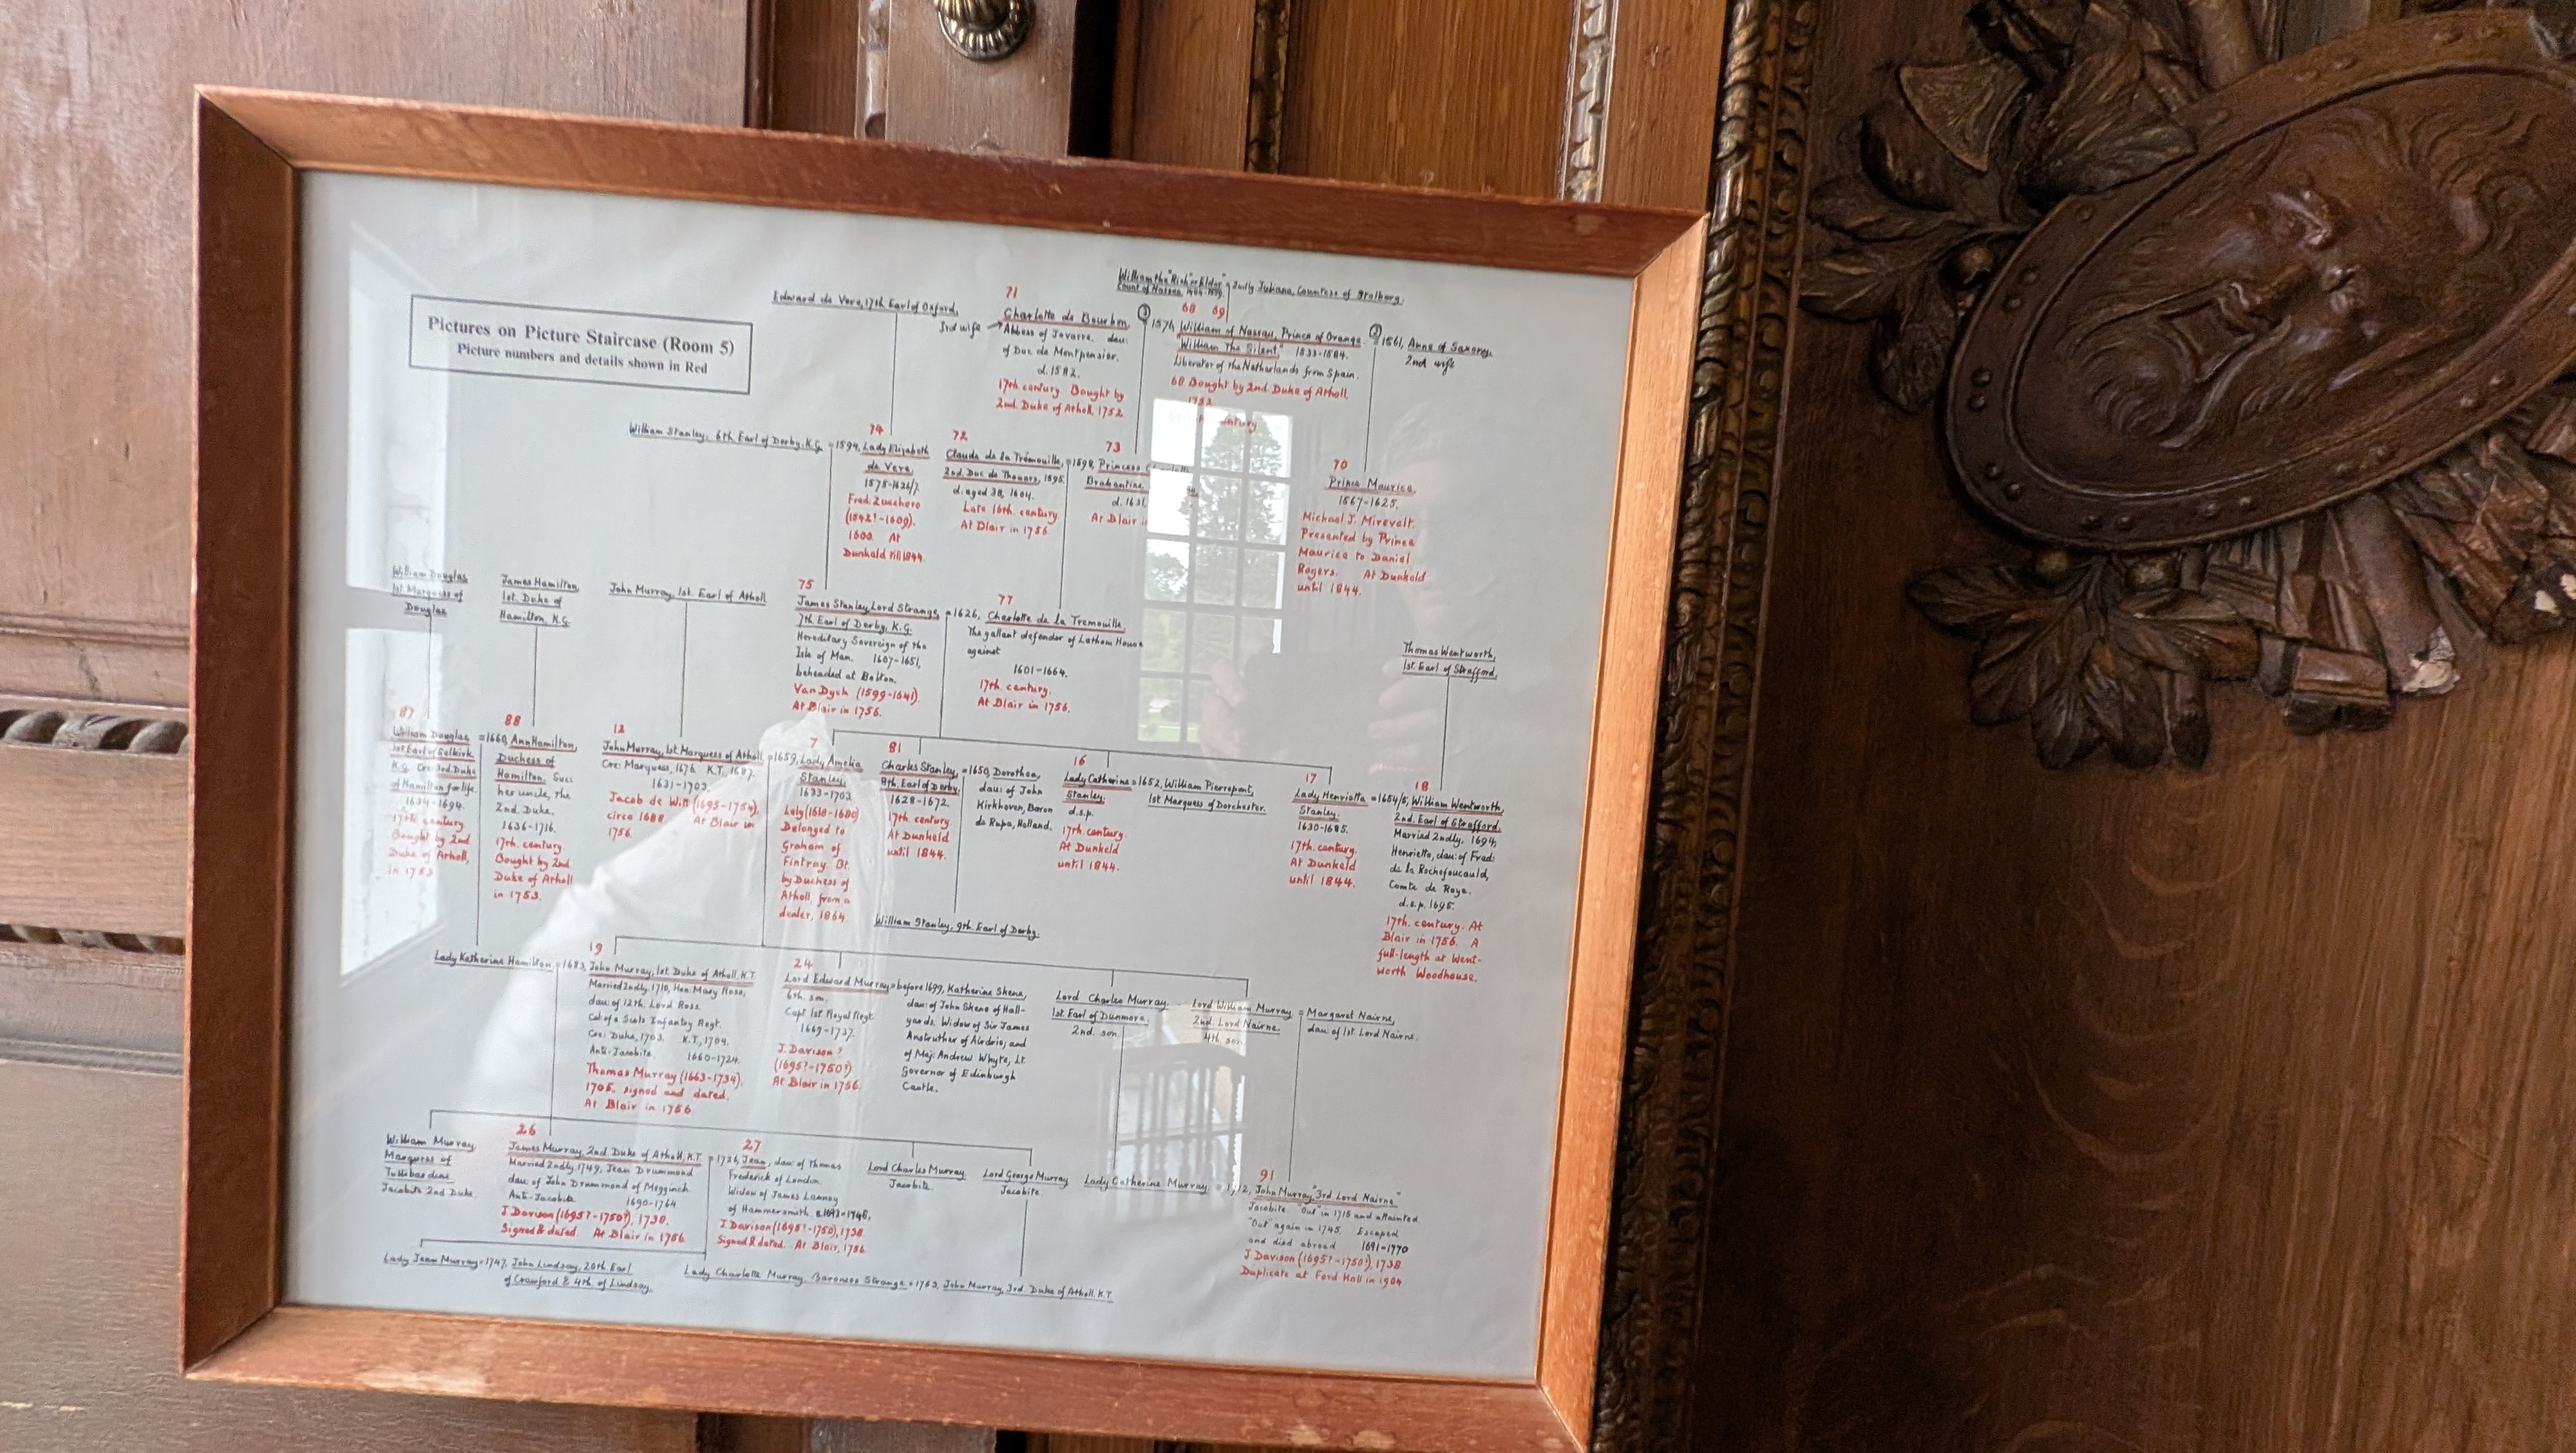 Pictures on Picture Staircase (Room 5)
Picture numbers and details shown in Red
Edward de Vere, 17th Earl of Oxford,
3rd wife
71
Charlotte de Bourbon,
Abbess of Jovarre. dau:
of Duc de Montpensier.
d. 1582.
17th century. Bought by
2nd. Duke of Atholl, 1752
William the "Rich" or Elder
Count of Nassau
= 2ndly Juliana, Countess of Stolberg.
68 69
③
1574, William of Nassau, Prince of Orange.
"William the Silent" 1533-1584.
Liberator of the Netherlands from Spain.
68. Bought by 2nd. Duke of Atholl,
1752
②
= 1561, Anne of Saxony,
2nd wife
William Stanley, 6th Earl of Derby. K.G. = 1594,
74
Lady Elizabeth
de Vere,
1575-1626/7.
Fred: Zucchero
(1542?-1609).
1600. At
Dunkeld till 1844.
72
Claude de la Trémouille,
2nd. Duc de Thouars, 1595.
d: aged 38, 1604.
Late 16th. century
At Blair in 1756.
73
= 1598, Princess
Brabantine
d. 1631.
At Blair
70
Prince Maurice.
1567-1625.
Michael J. Mirevelt.
Presented by Prince
Maurice to Daniel
Rogers. At Dunkeld
until 1844.
William Douglas
1st Marquess of
Douglas
James Hamilton,
1st. Duke of
Hamilton, K.G.
John Murray, 1st. Earl of Atholl
75
James Stanley, Lord Strange,
7th Earl of Derby, K.G.
Hereditary Sovereign of the
Isle of Man. 1607-1651,
beheaded at Bolton.
Van Dyck (1599-1641).
At Blair in 1756.
77
= 1626, Charlotte de la Tremouille,
The gallant defender of Lathom House
against
1601-1664.
17th. century.
At Blair in 1756.
Thomas Wentworth,
1st. Earl of Strafford,
87
William Douglas,
1st Earl of Selkirk
K.G. Cre: 3rd Duke
of Hamilton for life.
1634-1694.
17th century
Bought by 2nd
Duke of Atholl,
in 1753
88
= 1660, Ann Hamilton,
Duchess of
Hamilton. Suc:
her uncle, the
2nd. Duke.
1636-1716.
17th. century
Bought by 2nd
Duke of Atholl
in 1753.
12
John Murray, 1st. Marquess of Atholl
Cre: Marquess, 1676. K.T. 1687.
1631-1703.
Jacob de Witt (1695-1754),
circa 1688 At Blair in
1756.
7
= 1659, Lady Amelia
Stanley.
1633-1703
Lely (1618-1680)
Belonged to
Graham of
Fintray. Bt.
by Duchess of
Atholl, from a
dealer, 1864.
81
Charles Stanley,
8th. Earl of Derby,
1628-1672.
17th century
At Dunkeld
until 1844.
= 1650, Dorothea,
dau: of John
Kirkhoven, Baron
de Rupa, Holland.
16
Lady Catherine
Stanley.
d.s.p.
17th. century.
At Dunkeld
until 1844.
= 1652, William Pierrepont,
1st Marquess of Dorchester.
17
Lady Henrietta
Stanley.
1630-1685.
17th. century.
At Dunkeld
until 1844.
18
= 1654/5, William Wentworth,
2nd. Earl of Strafford.
Married 2ndly, 1694,
Henrietta, dau: of Fred:
de la Rochefoucauld,
Comte de Roye.
d.s.p. 1695.
17th. century. At
Blair in 1756. A
full-length at Went-
worth Woodhouse.
William Stanley, 9th. Earl of Derby.
Lady Katherine Hamilton
19
= 1683, John Murray, 1st. Duke of Atholl. K.T.
Married 2ndly, 1710, Hon: Mary Ross,
dau: of 12th. Lord Ross.
Col: of a Scots Infantry Regt.
Cre: Duke, 1703. K.T., 1704.
Anti-Jacobite. 1660-1724.
Thomas Murray (1663-1734).
1705. signed and dated.
At Blair in 1756
24
Lord Edward Murray
6th. son.
Capt: 1st. Royal Regt.
1669-1737.
J. Davison?
(1695?-1750?)
At Blair in 1756.
= before 1699, Katherine Skene,
dau: of John Skene of Hall-
yards. Widow of Sir James
Anstruther of Airdrie; and
of Maj: Andrew Whyte, Lt.
Governor of Edinburgh
Castle.
Lord Charles Murray.
1st. Earl of Dunmore,
2nd. son.
Lord William Murray
2nd. Lord Nairne.
4th son.
= Margaret Nairne,
dau: of 1st. Lord Nairne.
William Murray,
Marquess of
Tullibardine,
Jacobite 2nd Duke.
26
James Murray, 2nd. Duke of Atholl, K.T.
Married 2ndly, 1749, Jean Drummond
dau: of John Drummond of Megginch
Anti-Jacobite 1690-1764
J. Davison (1695?-1750?), 1738.
Signed & dated. At Blair in 1756
27
= 1726, Jean, dau: of Thomas
Frederick of London
Widow of James Lannoy
of Hammersmith
J. Davison (1695?-1750), 1738.
Signed & dated. At Blair, 1756.
Lord Charles Murray
Jacobite.
Lord George Murray
Jacobite.
Lady Catherine Murray
91
John Murray "3rd Lord Nairne"
Jacobite. "Out" in 1715 and attainted
"Out" again in 1745. Escaped
and died abroad 1691-1770
J. Davison (1695?-1750?), 1738
Duplicate at Ford Hall in 1904
Lady Jean Murray = 1747, John Lindsay, 20th Earl
of Crawford & 4th. of Lindsay.
Lady Charlotte Murray, Baroness Strange = 1753, John Murray, 3rd. Duke of Atholl. K.T.